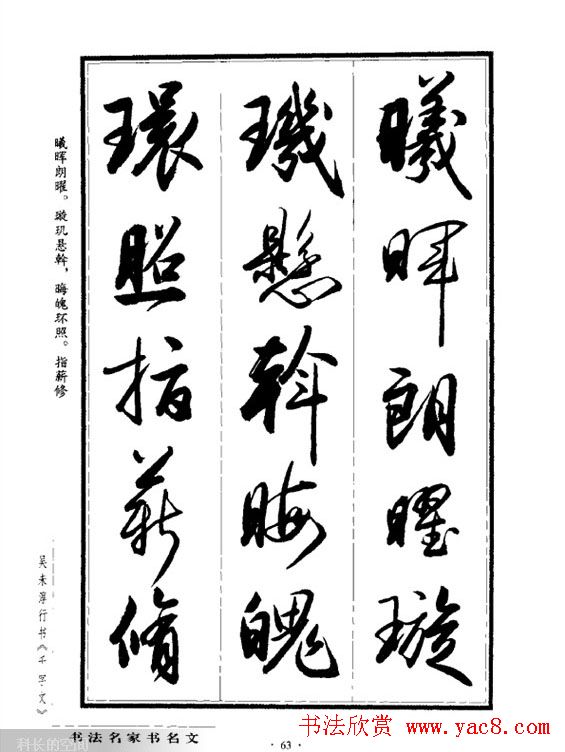 曦暉朗曜璇
璣懸斡晦魄
環照指薪脩
曦晖朗曜。璇玑悬斡,晦魄环照。指薪修
吴未淳行书《千字文》
书法名家书名文
·63·
科长的空间
书法欣赏 www.yac8.com